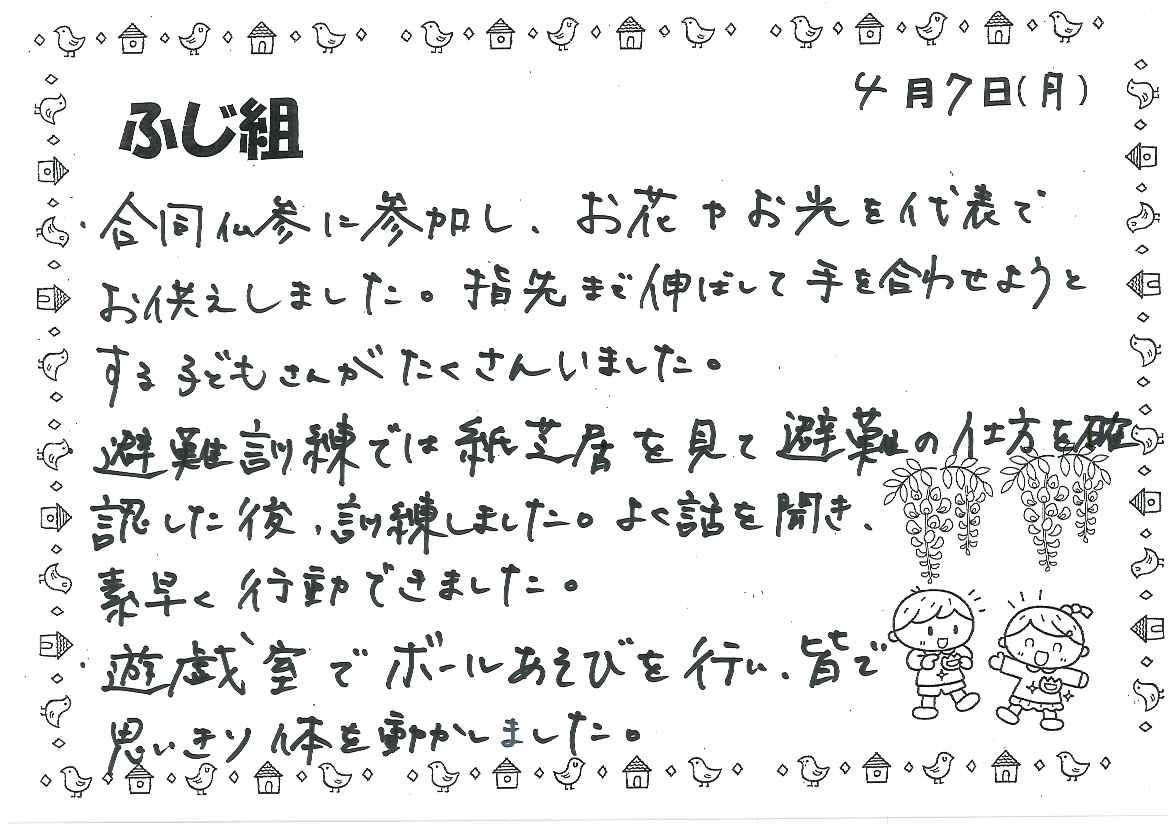 4月7日(月)
ふじ組
・合同仏参に参加し、お花やお光を代表で
お供えしました。指先まで伸ばして手を合わせようと
する子どもさんがたくさんいました。
避難訓練では紙芝居を見て避難の仕方を確
認した後、訓練しました。よく話を聞き、
素早く行動できました。
・遊戯室でボールあそびを行い、皆で
思いきり体を動かしました。